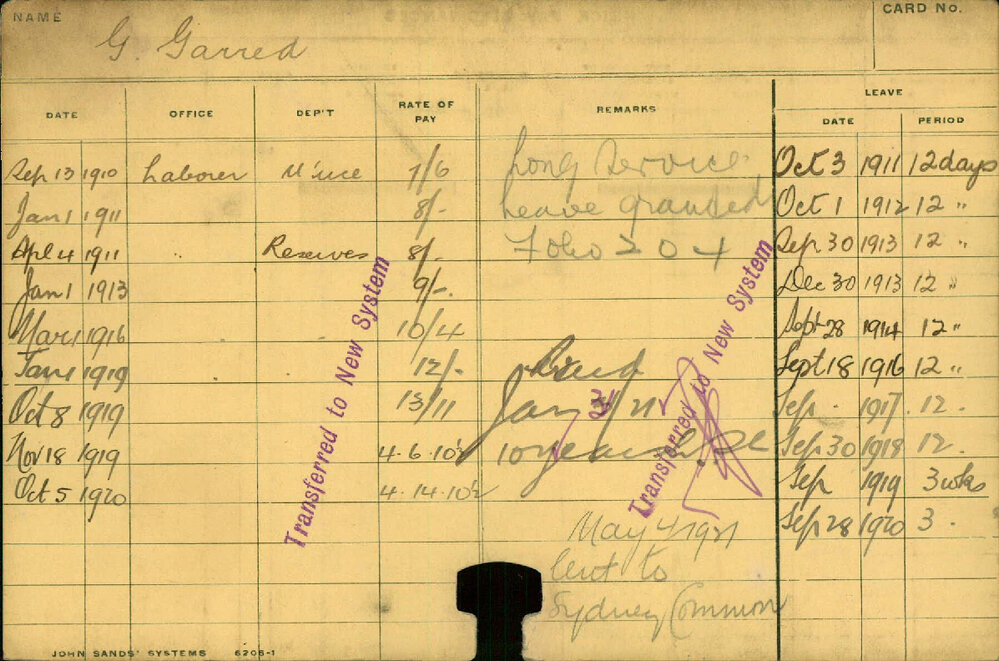 NAME
G. Garred
CARD No.
DATE OFFICE DEP'T RATE OF PAY REMARKS
LEAVE
DATE PERIOD
Sep 13 1910 Laborer M'nce 7/6
Jan 1 1911 8/-
Apl 4 1911 Reserves 8/-
Jan 1 1913 9/-
Mar 1 1916 10/4
Jan 1 1919 12/-
Oct 8 1919 13/11
Nov 18 1919 4.6.10½
Oct 5 1920 4.14.10½
Long Service
Leave granted
Folio 204
Jan 21
10 years
May 4 1921
Lent to
Sydney Common
Oct 3 1911 12 days
Oct 1 1912 12 "
Sep 30 1913 12 "
Dec 30 1913 12 "
Sept 28 1914 12 "
Sept 18 1916 12 "
Sep . 1917 . 12 .
Sep 30 1918 12 .
Sep 1919 3 wks
Sep 28 1920 3 . "
Transferred to New System
Transferred to New System
JOHN SANDS' SYSTEMS 6206-1